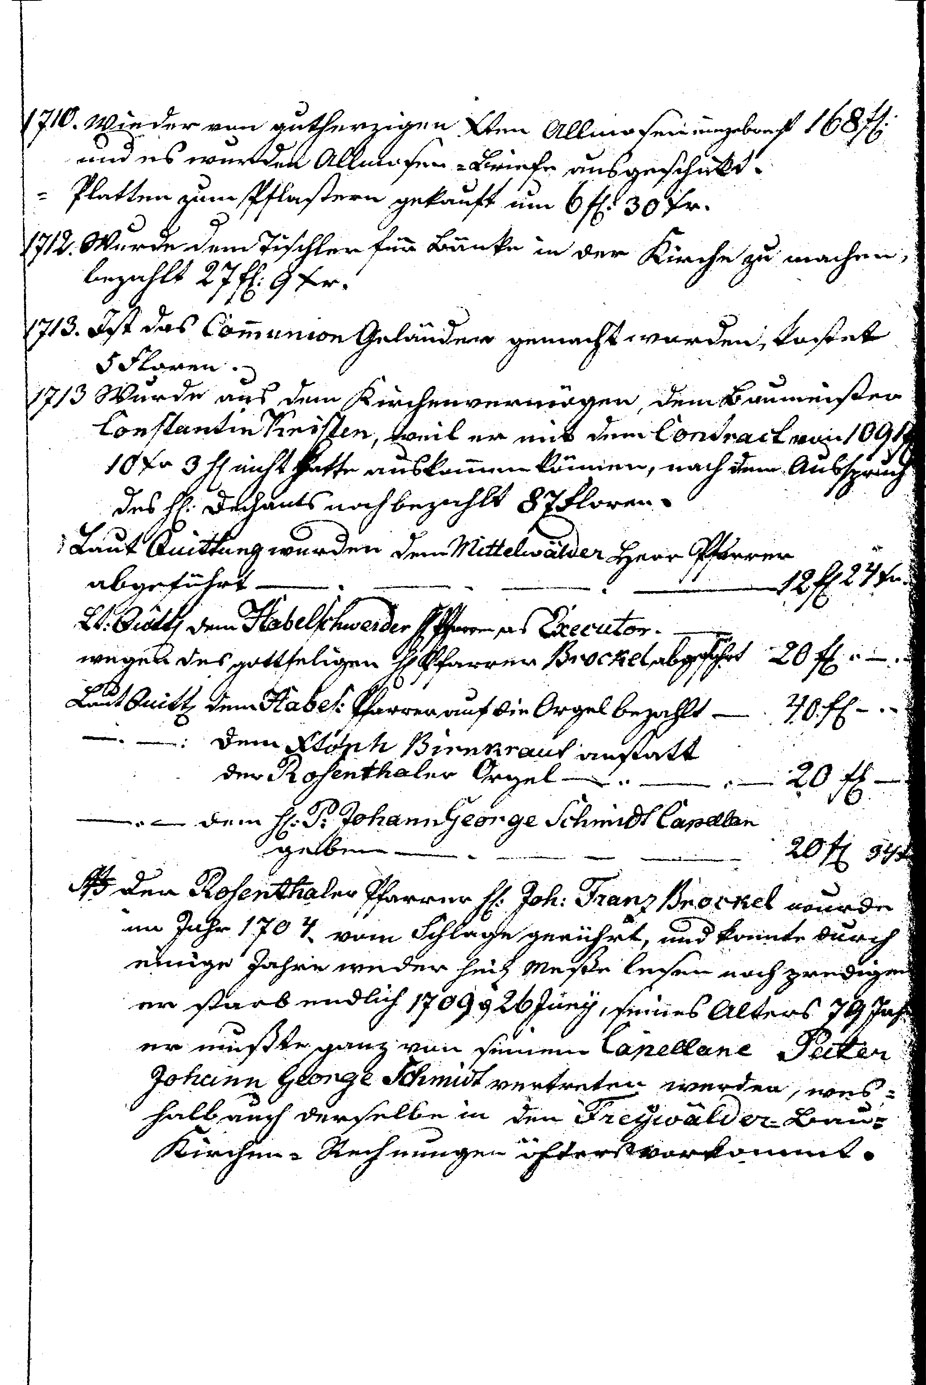 1710. Wieder von gutherzigen Xten Allmosen eingebracht 168 fl:
und es wurden Allmosen=Briefe ausgeschickt.
= Platten zum Pflastern gekauft um 6 fl: 30 Xr.
1712. Wurde dem Tischler für Bänke in der Kirche zu machen,
bezahlt 27 fl: 9 Xr.
1713. Ist das Com̅union Geländer gemacht worden, kostet
5 Floren.
1713 Wurde aus dem Kirchenvermögen, dem Baumeister
Constantin Kristen, weil er mit dem Contract von 1091 fl
10 Xr 3 hl nicht hatte auskommen können, nach dem Ausspruch
des H: Dechants noch bezahlt 87 Floren.
Laut Quittung wurden dem Mittelwälder Herr Pfarrer
abgeführt — . — — . — 12 fl 24 Xr.
Lt: Quitt dem Habelschwerder H Pfarrer as Executor. —
wegen des gottseligen H Pfarrer Brockel abgeführt 20 fl . — .
Laut Quitt dem Habel: Pfarrer auf die Orgel bezahlt — 40. fl — . .
— . — : dem Xstoph Birnkraut anstatt
der Rosenthaler Orgel — . . — . — 20 fl —
— . — dem H: P: Johann George Schmidt Capellan
geben — . — — 20 fl 34 X
NB Der Rosenthaler Pfarrer H: Joh: Franz Brockel wurde
im Jahr 1704 vom Schlage gerührt, und konnte durch
einige Jahre weder heil Messe lesen noch predigen
er starb endlich 1709 d 26 Juny, seines Alters 79 Jah
er mußte ganz von seinem Capellane Pater
Johann George Schmidt vertreten werden, wes=
halb auch derselbe in den Freÿwälder=Bau=
Kirchen=Rechnungen öfters vorkommt.